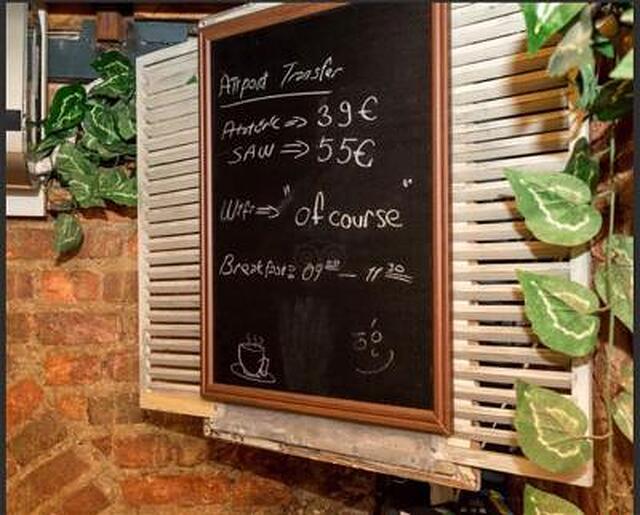 Airport Transfer
Atatürk => 39€
SAW => 55€
Wifi => "of course"
Breakfast: 09 00 — 11 30